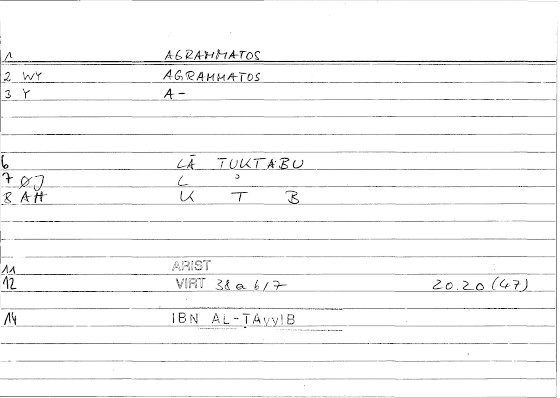 1 AGRAMMATOS
2 WY AGRAMMATOS
3 Y A-
6 LĀ TUKTABU
7 ØJ L ᵓ
8 AH K T B
11 ARIST
12 VIRT 38 a 6/7 20.20 (47)
14 IBN AL-ṬAyyIB